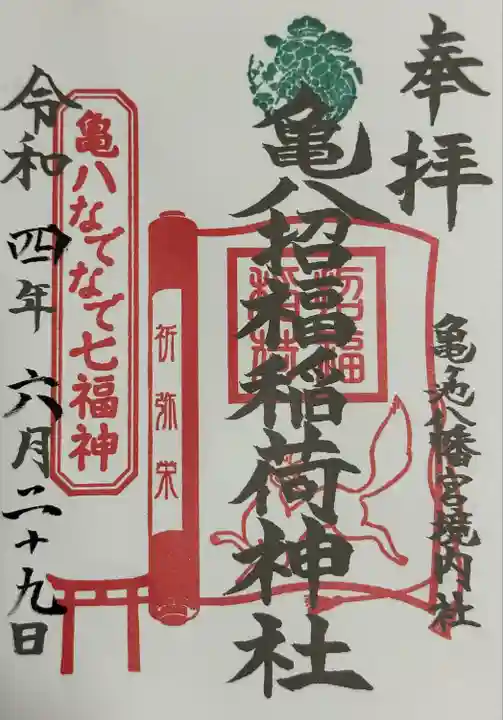 奉拝
亀ヶ池八幡宮境内社
亀八招福稲荷神社
招福
祈弥栄
亀八なでなで七福神
令和四年六月二十九日